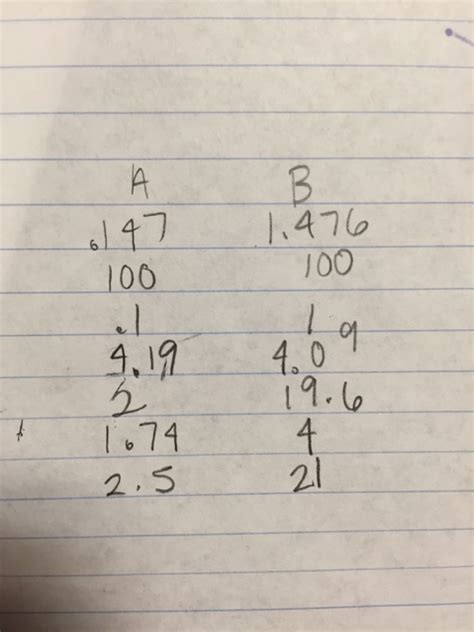 A B
.147 1.476
100 100
.1 1
4.19 4.09
2 19.6
1.74 4
2.5 21